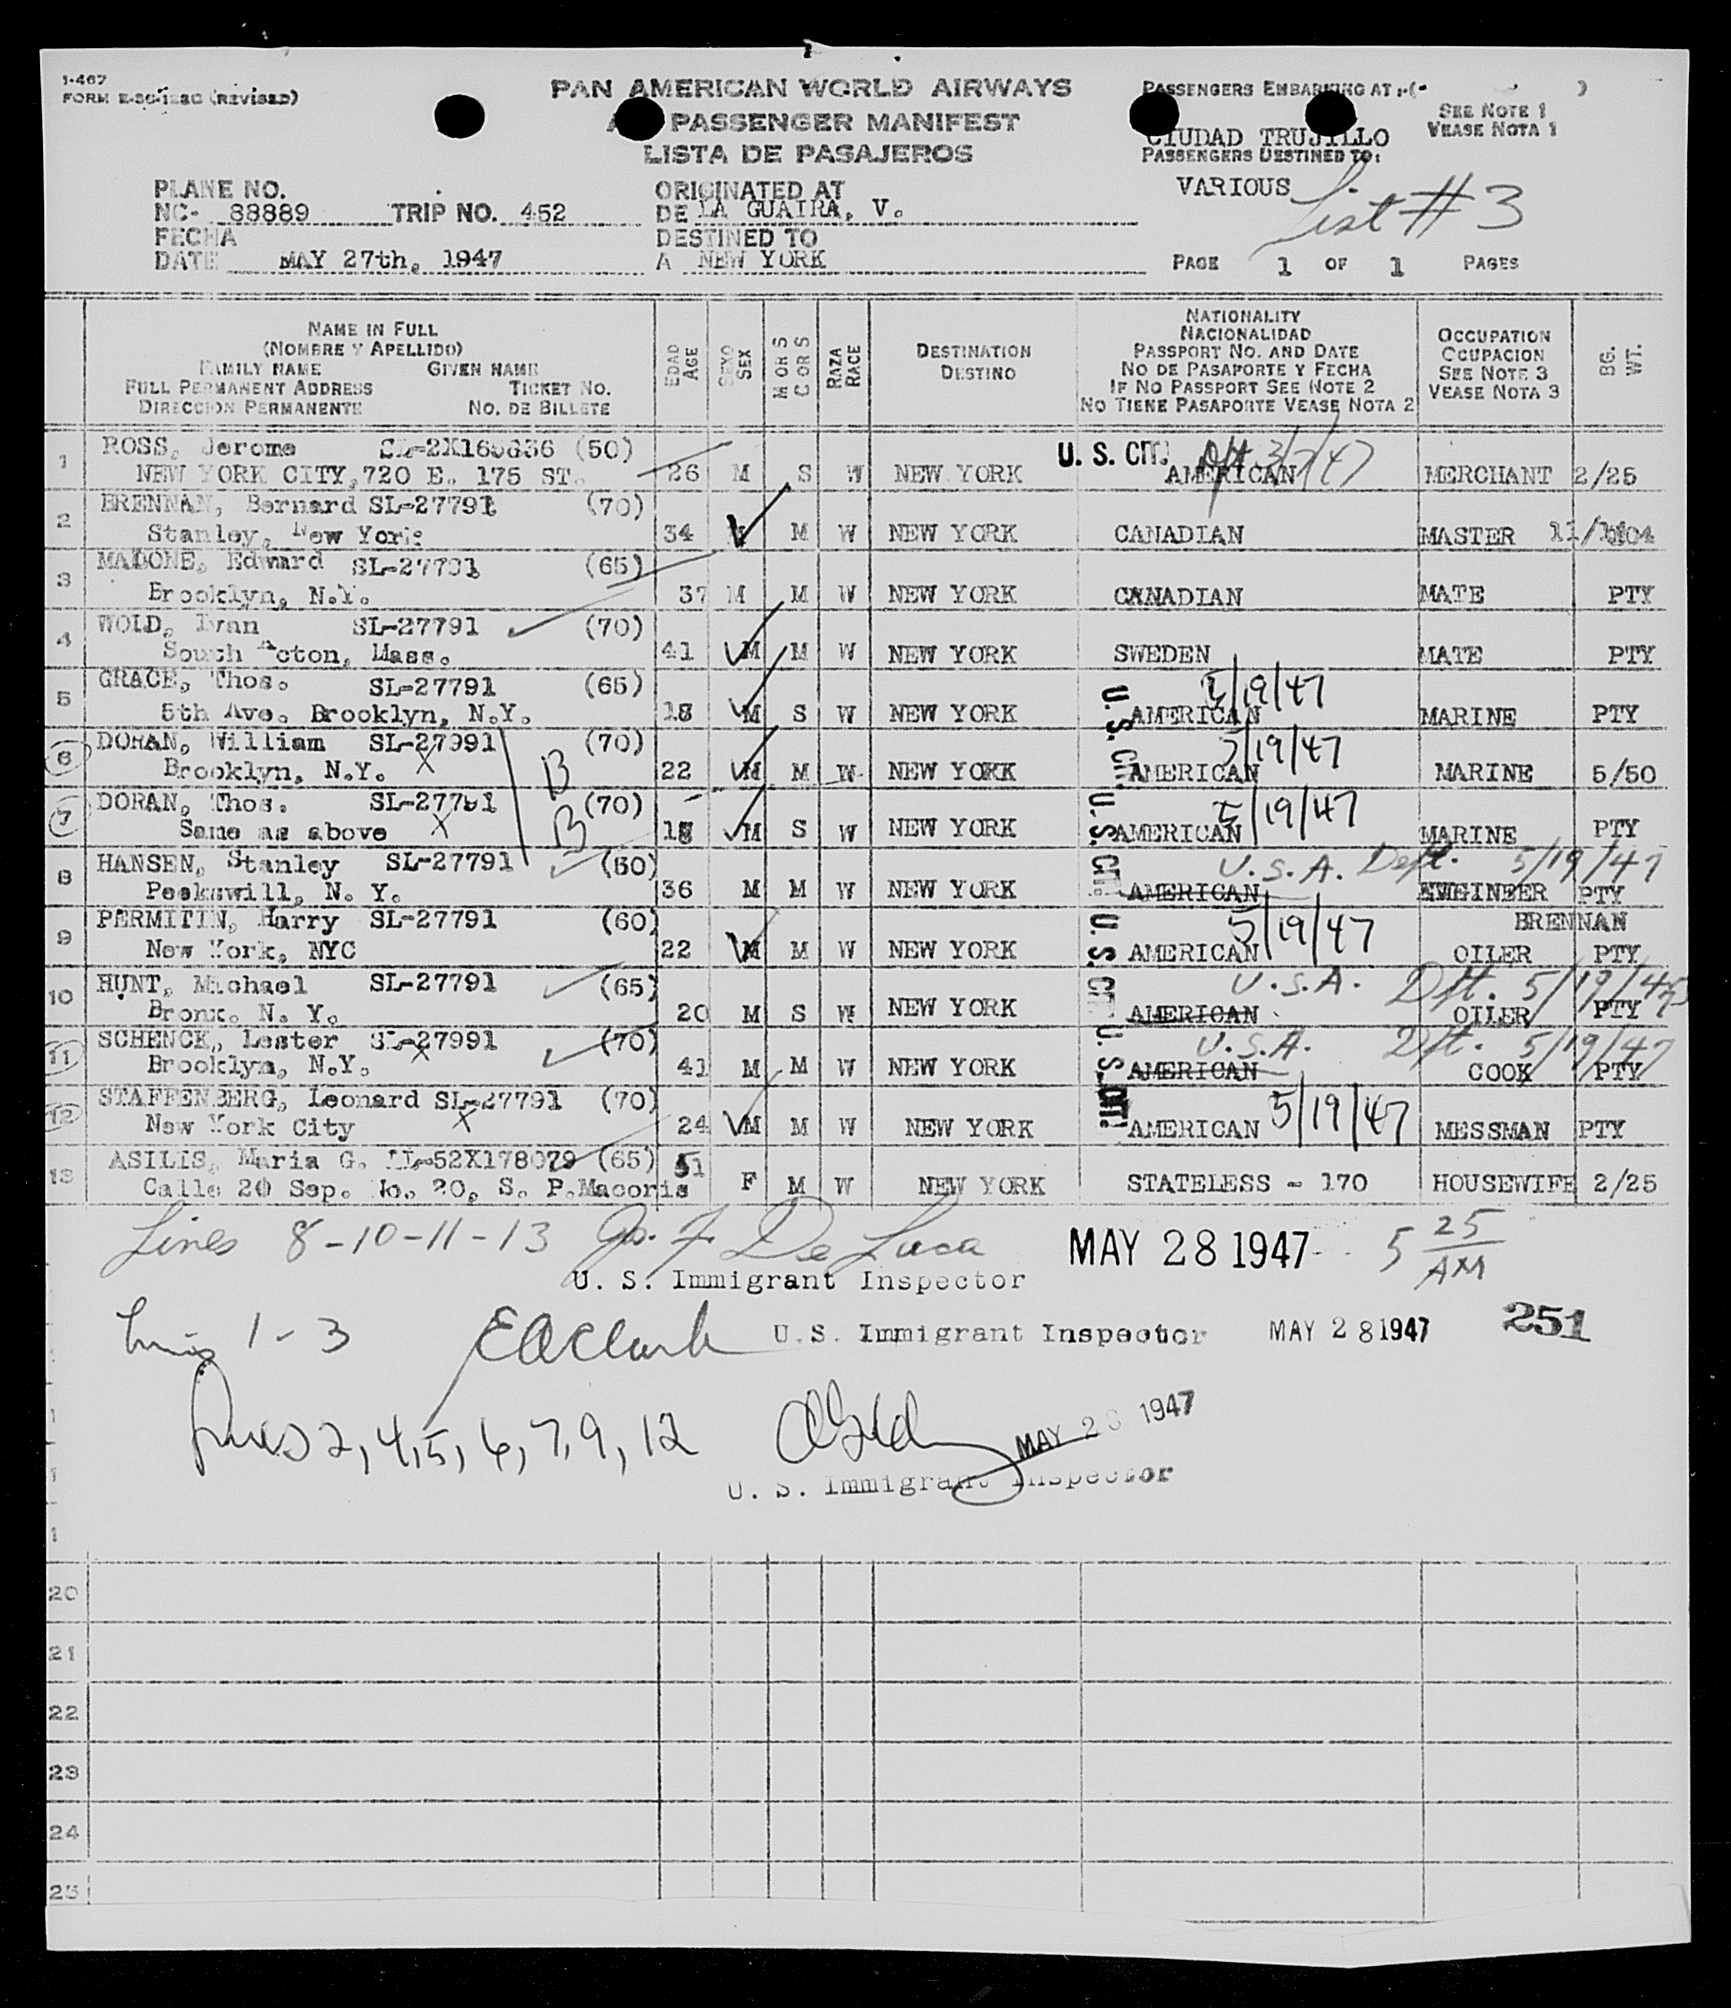 1-467
PAN AMERICAN WORLD AIRWAYS
PASSENGER MANIFEST
LISTA DE PASAJEROS
PASSENGERS EMBARKING AT :-(- )
SEE NOTE 1
VEASE NOTA 1
CIUDAD TRUJILLO
PASSENGERS DESTINED TO:
VARIOUS
List # 3
PLANE NO.
NC- 88889 TRIP NO. 452
FECHA
DATE MAY 27th, 1947
ORIGINATED AT
DE LA GUAIRA, V.
DESTINED TO
A NEW YORK
PAGE 1 OF 1 PAGES
NAME IN FULL
(NOMBRE Y APELLIDO)
FAMILY NAME GIVEN NAME
FULL PERMANENT ADDRESS TICKET NO.
DIRECCION PERMANENTE NO. DE BILLETE
EDAD
AGE
SEXO
SEX
M OR S
C OR S
RAZA
RACE
DESTINATION
DESTINO
NATIONALITY
NACIONALIDAD
PASSPORT NO. AND DATE
NO DE PASAPORTE Y FECHA
IF NO PASSPORT SEE NOTE 2
NO TIENE PASAPORTE VEASE NOTA 2
OCCUPATION
OCUPACION
SEE NOTE 3
VEASE NOTA 3
BG.
WT.
1 ROSS, Jerome (50) U. S. CIT. 3/7/47
NEW YORK CITY, 720 E. 175 ST. 26 M S W NEW YORK AMERICAN MERCHANT 2/25
2 BRENNAN, Bernard SL-27791 (70)
Stanley, New York 34 M W NEW YORK CANADIAN MASTER
3 MALONE, Edward SL-27791 (65)
Brooklyn, N.Y. 37 M M W NEW YORK CANADIAN MATE PTY
4 WOLD, Ivan SL-27791 (70)
South Acton, Mass. 41 M M W NEW YORK SWEDEN MATE PTY
5 GRACE, Thos. SL-27791 (65) 5/19/47
5th Ave. Brooklyn, N.Y. 18 M S W NEW YORK U. S. CIT. AMERICAN MARINE PTY
6 DORAN, William SL-27991 (70) 5/19/47
Brooklyn, N.Y. X B 22 M M W NEW YORK AMERICAN MARINE 5/50
7 DORAN, Thos. SL-27791 (70) 5/19/47
Same as above X B 18 M S W NEW YORK U. S. CIT. AMERICAN MARINE PTY
8 HANSEN, Stanley SL-27791 (60) U.S.A. Dept. 5/19/47
Peekswill, N. Y. 36 M M W NEW YORK AMERICAN ENGINEER PTY
9 PERMITIN, Harry SL-27791 (60) 5/19/47 BRENNAN
New York, NYC 22 M M W NEW YORK U. S. CIT. AMERICAN OILER PTY
10 HUNT, Michael SL-27791 (65) U.S.A. Dft. 5/19/47
Bronx. N. Y. 20 M S W NEW YORK AMERICAN OILER PTY
11 SCHENCK, Lester SL-27991 (70) U.S.A. Dft. 5/19/47
Brooklyn, N.Y. X 41 M M W NEW YORK U. S. CIT. AMERICAN COOK PTY
12 STAFFENBERG, Leonard SL-27791 (70) 5/19/47
New York City X 24 M M W NEW YORK AMERICAN MESSMAN PTY
13 ASILIS, Maria G. LL-52X178079 (65) 51
Calle 20 Sep. No. 20, S. P.Macoris F M W NEW YORK STATELESS - 170 HOUSEWIFE 2/25
Lines 8-10-11-13 Jo. F De Luca MAY 28 1947 5 25 AM
U. S. Immigrant Inspector
Lines 1-3 EAClark U.S. Immigrant Inspector MAY 28 1947 251
Lines 2, 4, 5, 6, 7, 9, 12 MAY 1947
U. S. Immigrant Inspector
20
21
22
23
24
25